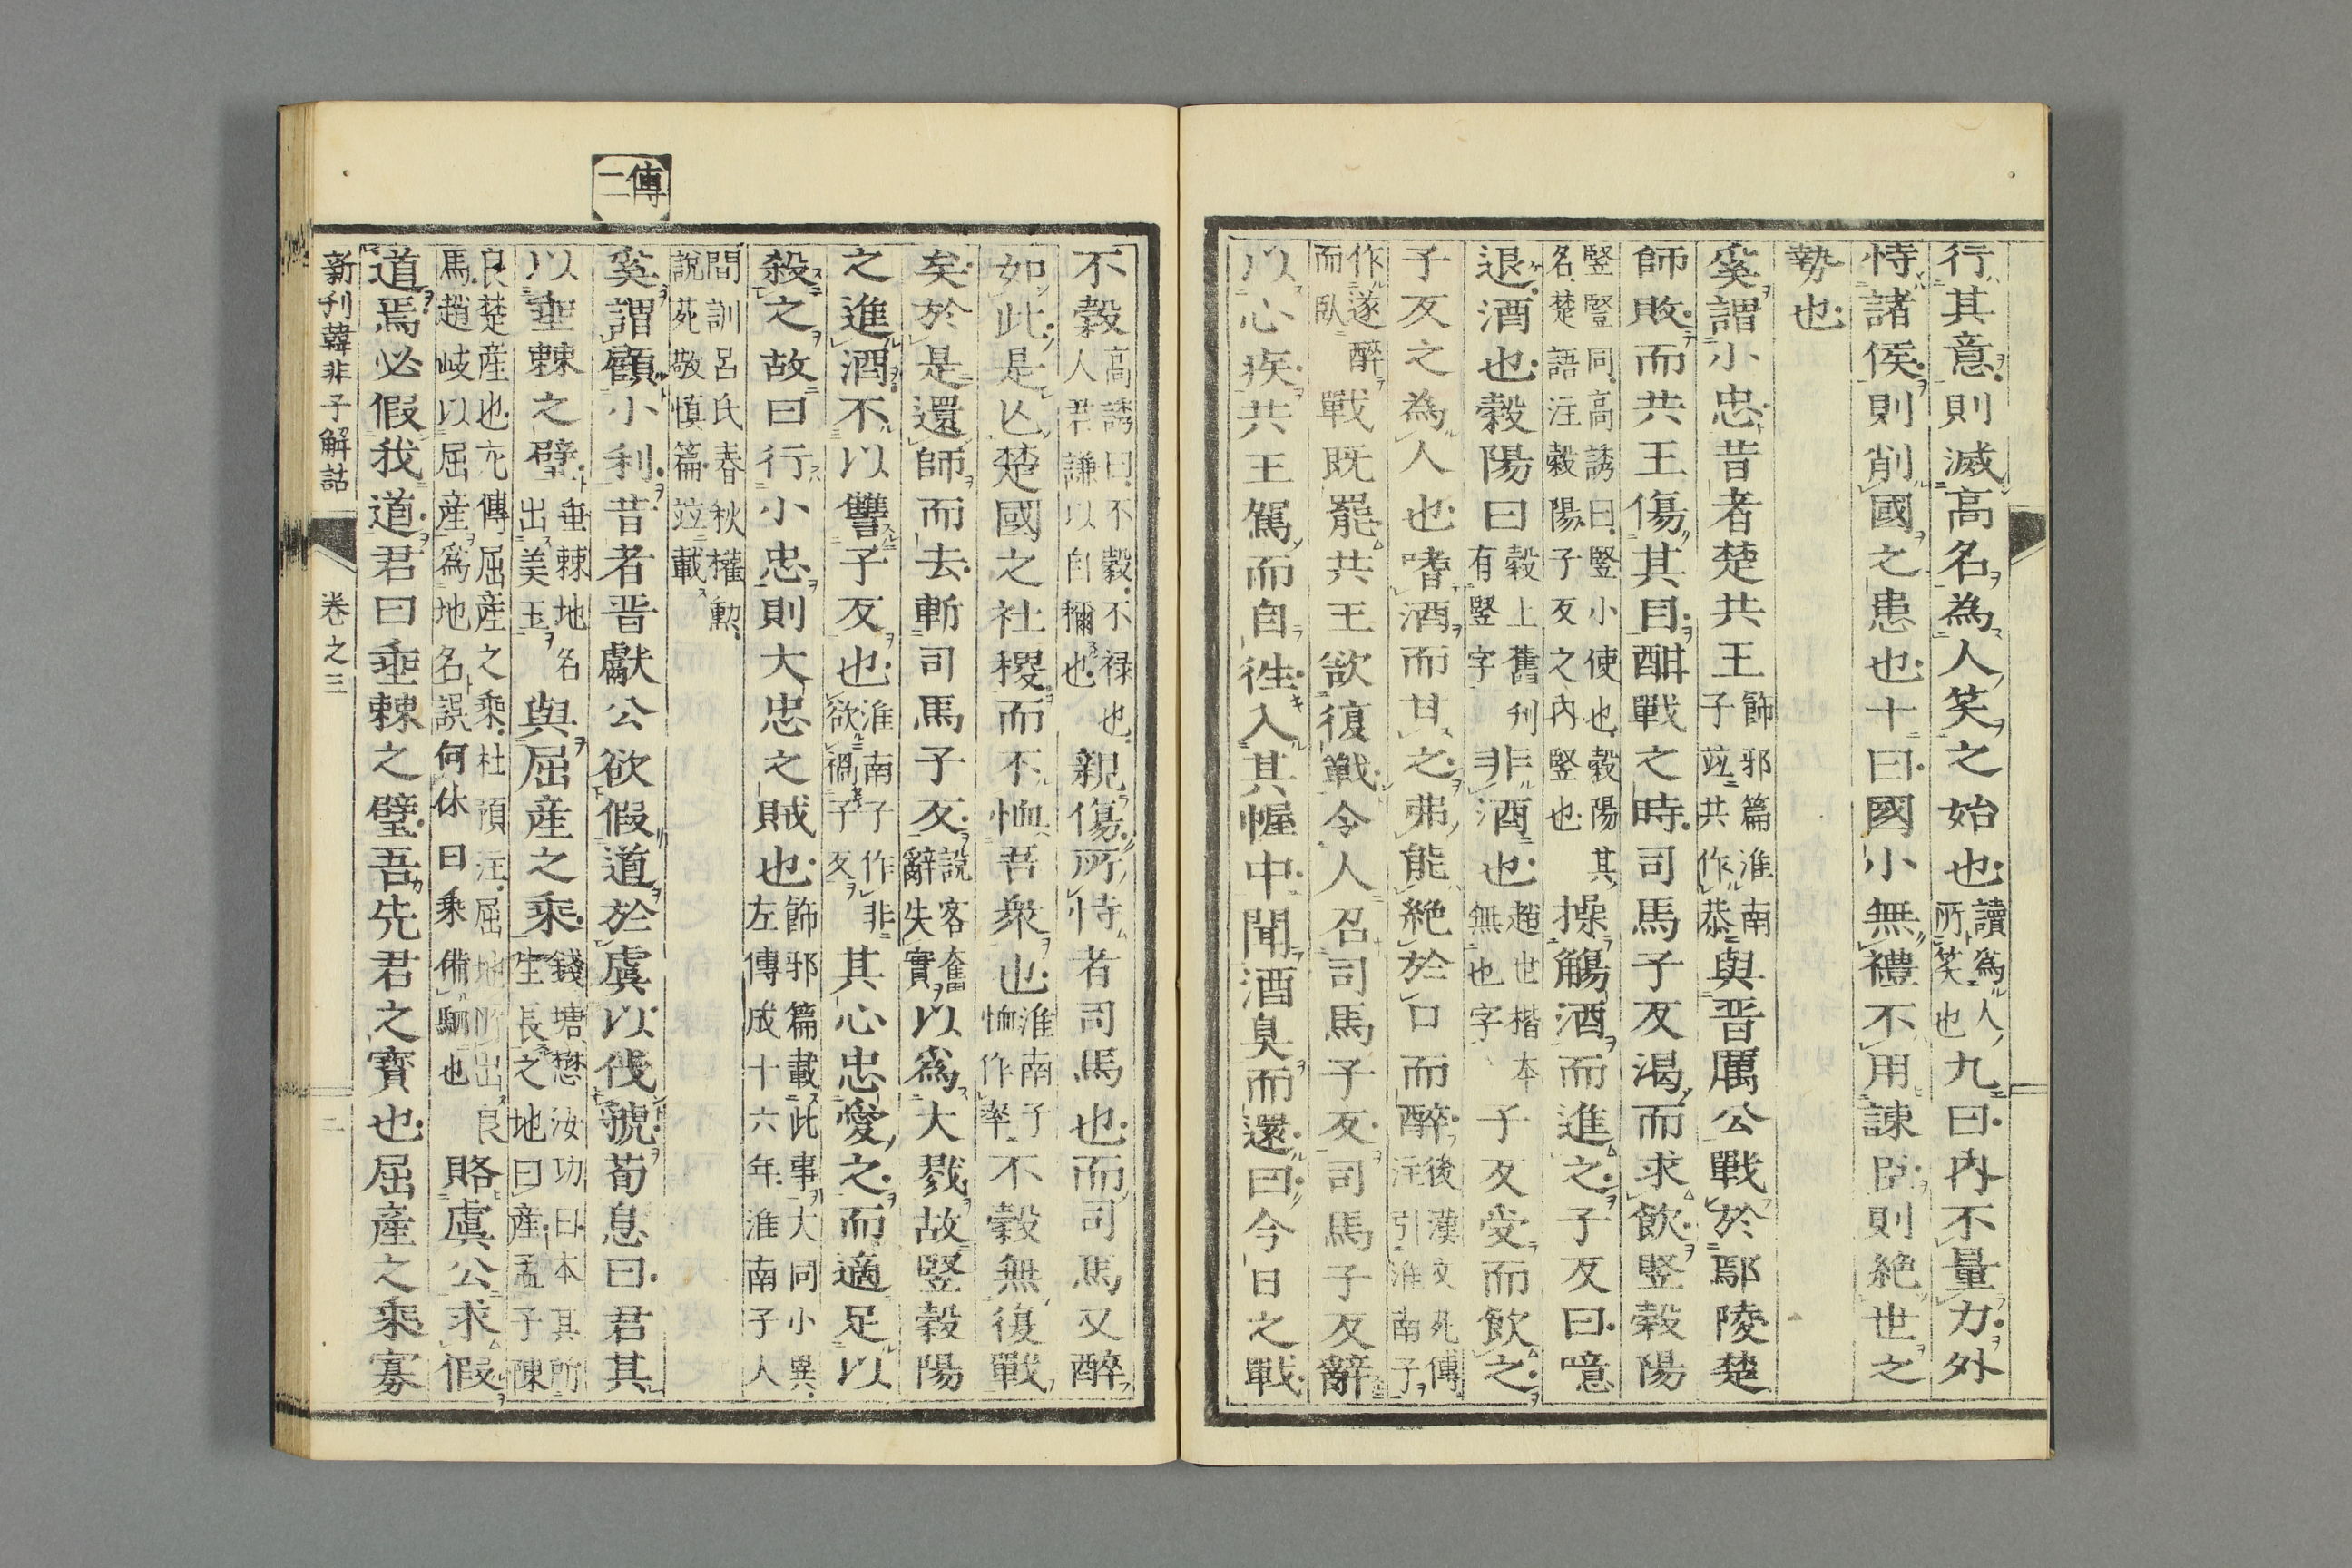 行其意則滅高名為人笑之始也讀為人所笑也九曰内不量力外
恃諸侯則削國之患也十曰國小無禮不用諫臣則絶世之
勢也
奚謂小忠昔者楚共王飾邪篇淮南子竝共作恭與晋厲公戰於鄢陵楚
師敗而共王傷其目酣戰之時司馬子反渴而求飲豎穀陽
豎竪同高誘曰竪小使也穀陽其名楚語注穀陽子反之内竪也操觴酒而進之子反曰噫
退酒也穀陽曰穀上舊刊有竪字非酒也趙世楷本無也字子反受而飲之
子反之為人也嗜酒而甘之弗能絶於口而醉後漢文苑傳注引淮南子
作遂醉而臥戰既罷共王欲復戰令人召司馬子反司馬子反辭
以心疾共王駕而自徃入其幄中聞酒臭而還曰今日之戰
不穀高誘曰不穀不禄也人君謙以自稱也親傷所恃者司馬也而司馬又醉
如此是亾楚國之社稷而不恤吾衆也淮南子恤作率不穀無復戰
矣於是還師而去斬司馬子反說客奮辭失實以為大戮故竪穀陽
之進酒不以讐子反也淮南子作非欲禍子反其心忠愛之而適足以
殺之故曰行小忠則大忠之賊也飾邪篇載此事大同小異左傳成十六年淮南子人
間訓呂氏春秋權勲說苑敬慎篇竝載
傳二
奚謂顧小利昔者晋獻公欲假道於虞以伐虢荀息曰君其
以垂棘之璧垂棘地名出美玉與屈産之乘錢塘懋汝功曰本其所生長之地曰産孟子陳
良楚産也左傳屈産之乘杜預注屈地所出良馬趙岐以屈産為地名誤何休曰乘備駟也賂虞公求假
道焉必假我道君曰垂棘之璧吾先君之寳也屈産之乘寡
新刊韓非子解詁 卷之三 二